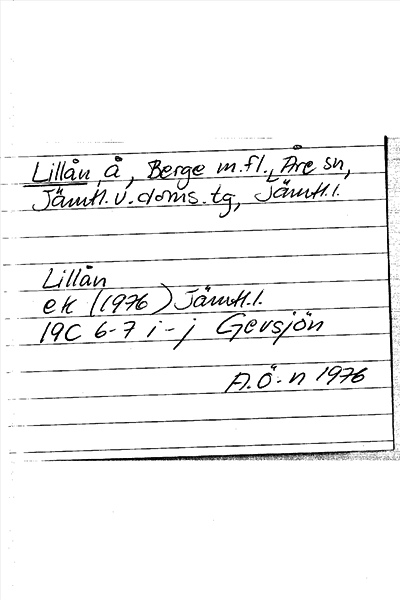 Lillån, å, Berge m.fl., Åre sn,
Jämtl. v. doms. tg, Jämtl. l.
Lillån
ek (1976) Jämtl. l.
19C 6-7 i-j Gevsjön
A.Ö-n 1976